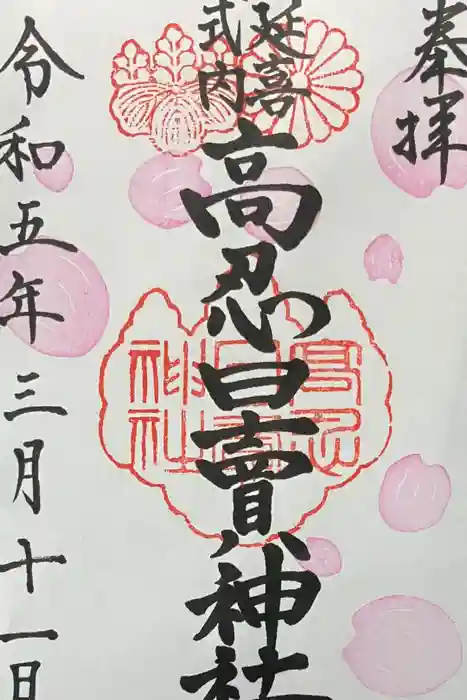 奉拝
延喜
式内
高忍日賣神社
令和五年三月十一日
高忍
日賣
神社